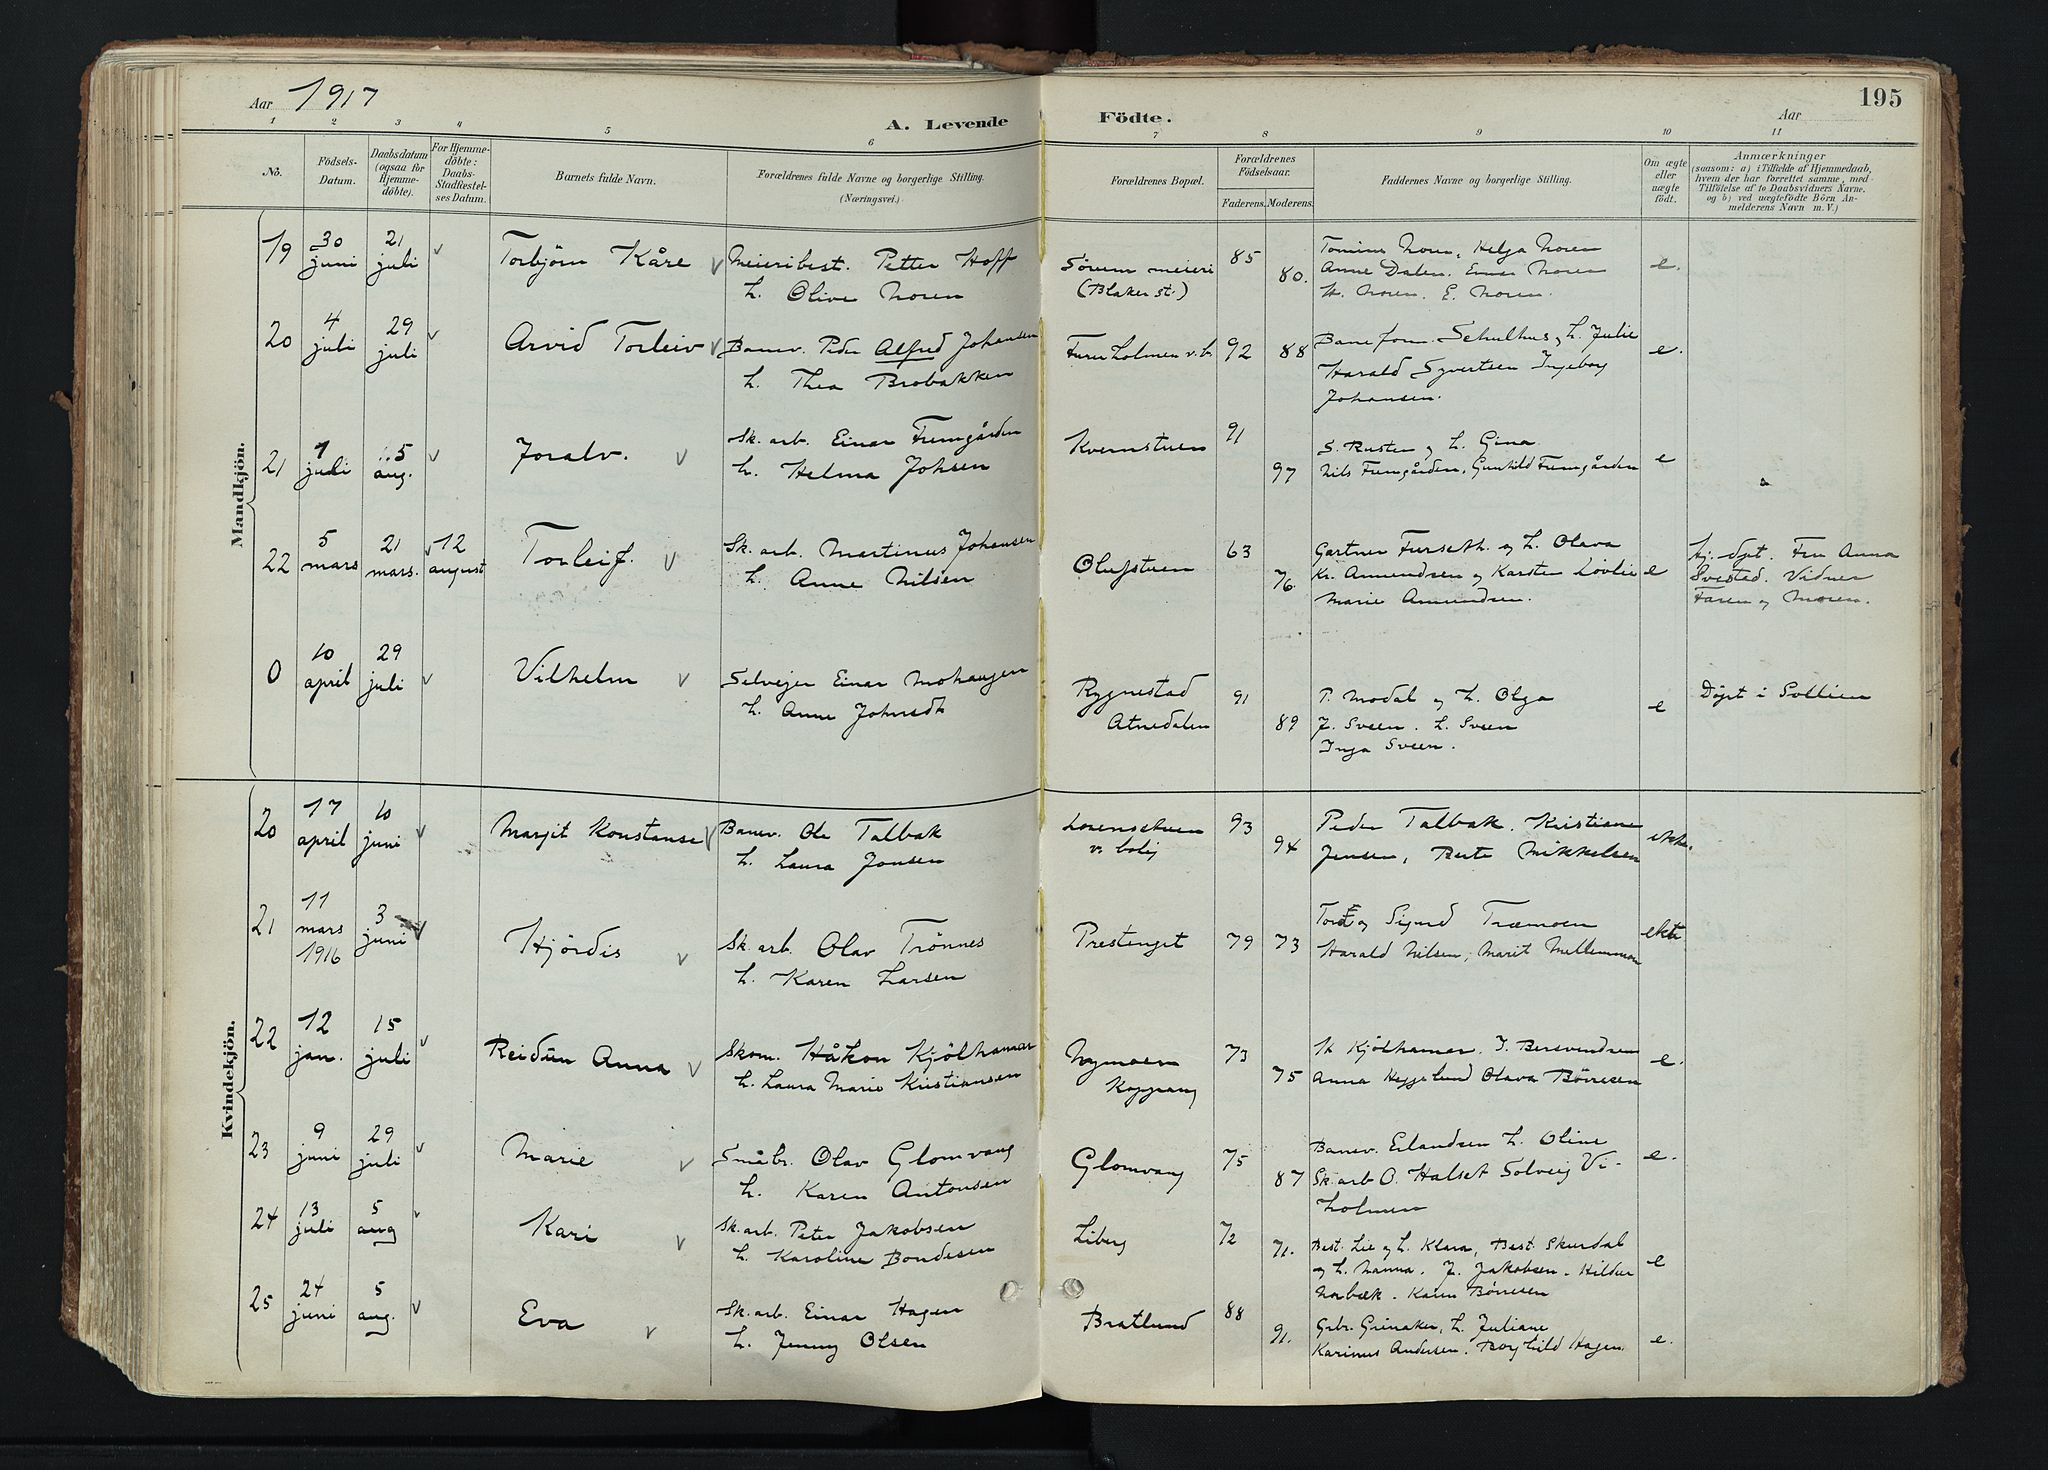 Aar 1917
A. Levende Födte.
Aar
195
1 2 3 4 5 6 7 8 9 10 11
No.
Födsels-Datum.
Daabsdatum (ogsaa for Hjemmedöbte).
For Hjemmedöbte: Daabs-Stadfæstelses Datum.
Barnets fulde Navn.
Forældrenes fulde Navne og borgerlige Stilling. (Næringsvei.)
Forældrenes Bopæl.
Forældrenes Födselsaar.
Faderens. Moderens.
Faddernes Navne og borgerlige Stilling.
Om ægte eller uægte födt.
Anmærkninger
(saasom: a) i Tilfælde af Hjemmedaab,
hvem der har forrettet samme, med
Tilföielse af to Daabsvidners Navne.
og b) ved uægtefödte Börn Anmelderens Navn m. V.)
Mandkjön.
19 30 juni 21 juli Torbjörn Kåre Meieribest. Petter Hoff
h. Olive Noren
Sörum meieri (Blaker st.) 85 80.
Tomine Noren, Helga Noren
Anne Dalen. Noren
H. Noren. E. Noren.
e.
20 4 juli 29 juli Arvid Torleiv Banev. Peder Alfred Johansen
h. Thea Brobakken
Furuholmen v. b. 92 88
Baneform. Schulhus, h. Julie
Harald Syvertsen Ingeborg
Johansen.
e.
21 7 juli 15 aug. Joralv. Sk. arb. Einar Fremgården
h. Helma Johsen
Kvernstuen 91 97
S. Rusten og h. Gina.
Nils Fremgården, Gunhild Fremgården
e
22 5 mars 21 mars. 12 august Torleif. Sk. arb. Martinus Johansen
h. Anne Nilsen
Olufstuen 63 76
Gartner Furseth. og h. Olava
Kr. Amundsen og Karsten Lövlie
Marie Amundsen.
e
Hj. döpt. Fru Anna
Svestad. Vidner
Faren og Moren.
0 10 april 29 juli Vilhelm Selvejer Einar Mohaugen
h. Anne
Rygnestad
Atnedalen
91 89
P. Modal og h. Olga
J. Sveen. L. Sveen
Inga Sveen.
e
Döpt i Sollien
Kvindekjön.
20 17 april 10 juni Margit Konstanse Banev. Ole Talbak
h. Laura Jonsen
v. bolig
93 94
Peder Talbak. Kristiane
Jensen, Berte Mikkelsen
ekte.
21 11 mars 1916 3 juni Hjördis Sk. arb. Olav Trönnes
h. Karen Larsen
Prestenget 79 73
Tord E og Sigurd Træmoen
Harald Nilsen, Marit Mellemmoen
ekte
22 12 jan. 15 juli Reidun Anna Skom. Håkon Kjölhamar
h. Laura Marie Kristiansen
Nymoen
Koppang
73 75
H. Kjölhamar. I. Bersvendsen
Anna Heggelund Olava Börresen
e.
23 9 juni 29 juli Marie Småbr. Olav Glomvang
h. Karen Antonsen
Glomvang 75 87
Banev. Erlandsen h. Oline
Sk. arb O. Halset Solveig Vi-
holmen
e.
24 13 juli 5 aug Kari Sk. arb. Peter Jakobsen
h. Karoline Bondesen
Liberg 72 71.
Best. Lie og h. Klara, Best. Skurdal
og h. Nanna. J. Jakobsen. Hildur
Norbæk. Karen Börresen
e
25 24 juni 5 aug. Eva Sk. arb. Einar Hagen
h. Jenny Olsen
Bratlund 88 91.
Gbr. Grinaker, h. Juliane
Karinus Andersen. Borghild Hagen
e.